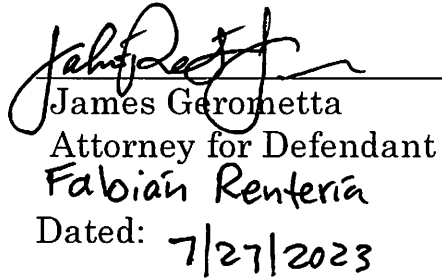 James Gerometta
Attorney for Defendant
Fabián Rentería
Dated: 7/27/2023